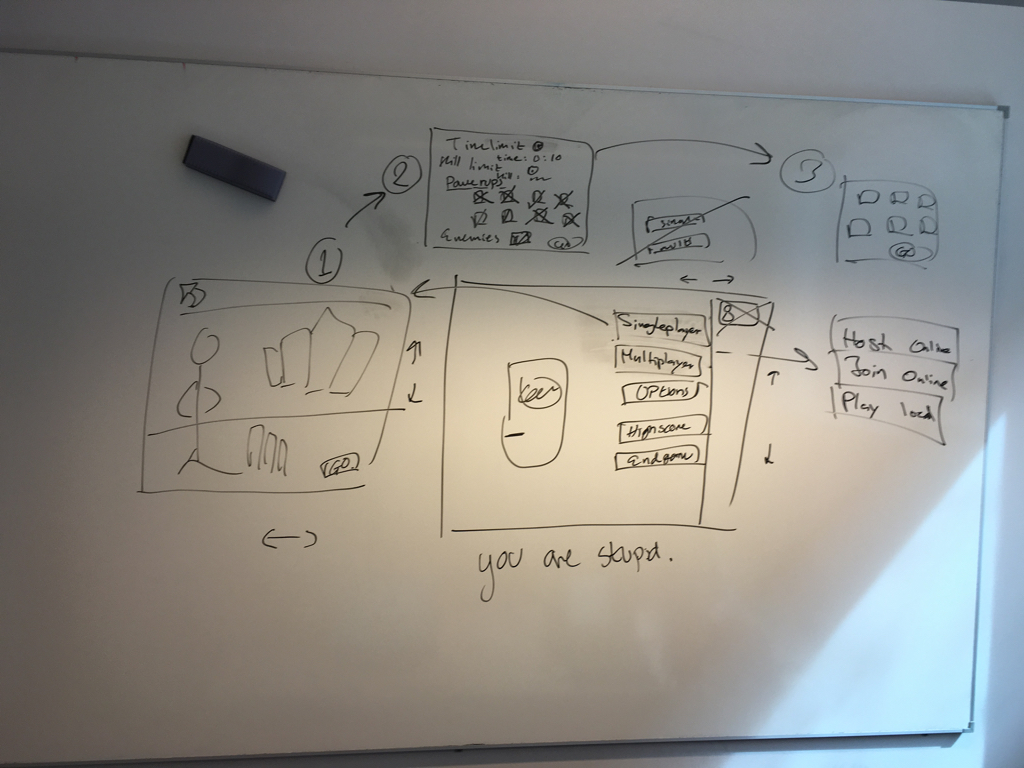 2
Timelimit
time: 0:10
kill limit
Powerups
Enemies
GO
3
GO
1
GO
Singleplayer
Multiplayer
Options
Highscore
Endgame
Host Online
Join Online
Play local
you are stupid.